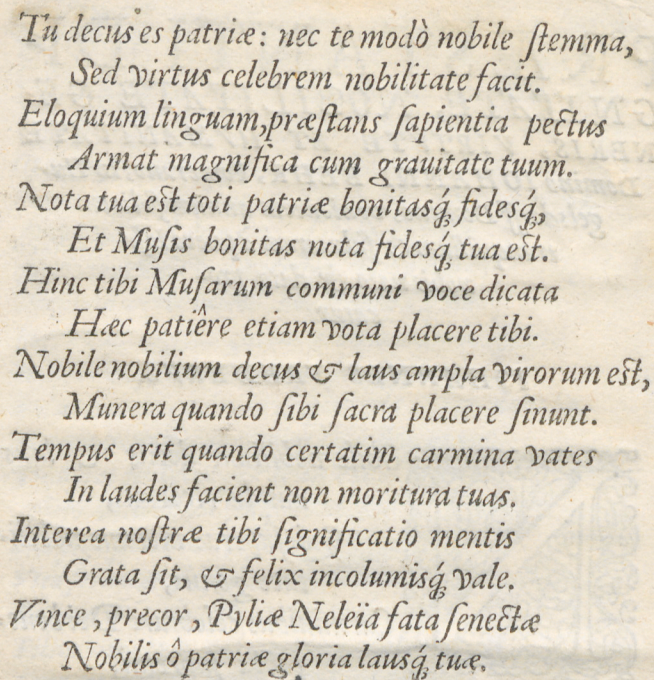 Tu decus es patriæ: nec te modò nobile ſtemma,
Sed virtus celebrem nobilitate facit.
Eloquium linguam, præſtans ſapientia pectus
Armat magnifica cum grauitate tuum.
Nota tua eſt toti patriæ bonitasq́; fidesq́;,
Et Muſis bonitas nota fidesq́; tua eſt.
Hinc tibi Muſarum communi voce dicata
Hæc patiêre etiam vota placere tibi.
Nobile nobilium decus & laus ampla virorum eſt,
Munera quando ſibi ſacra placere ſinunt.
Tempus erit quando certatim carmina vates
In laudes facient non moritura tuas.
Interea noſtræ tibi ſignificatio mentis
Grata ſit, & felix incolumisq́; vale.
Vince, precor, Pyliæ Neleïa fata ſenectæ
Nobilis ô patriæ gloria lausq́; tuæ.